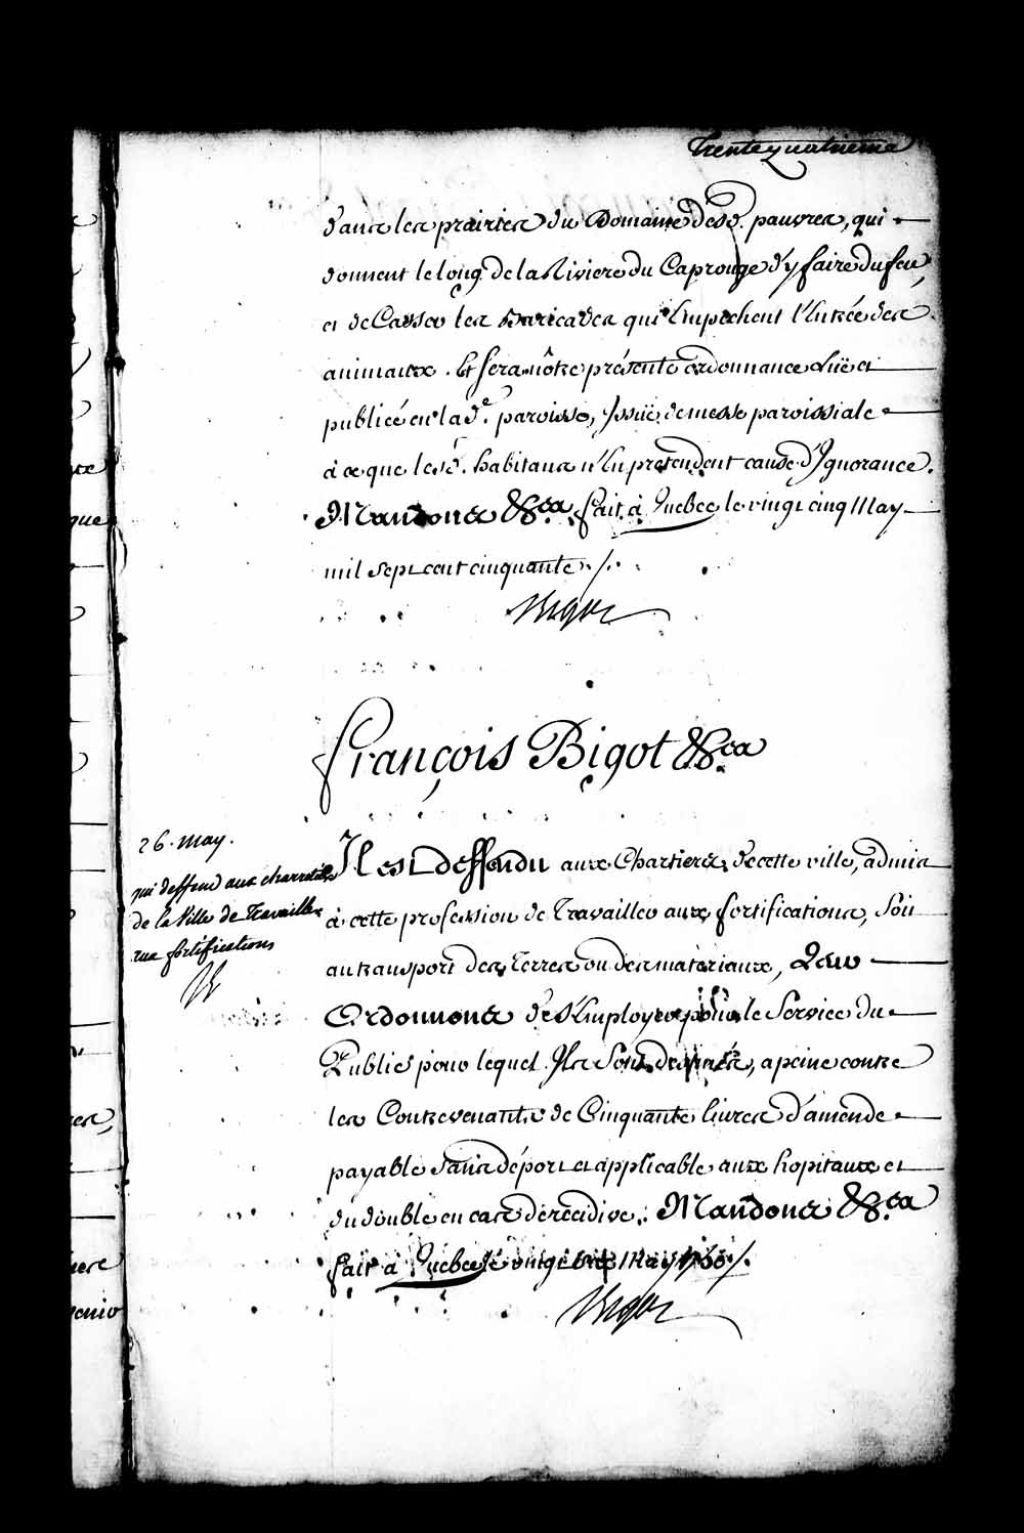 Trente quatrieme
dans les prairies du Domaine desd. pauvres, qui
donnent le long de la Riviere du Caprouge d'y faire du feu,
et de Casser les Baricades qui Empechent l'Entrée des
animaux. Et sera nôtre présente ordonnance Luë et
publiée en lad.e paroisse, Issuë de messe paroissiale
à ce que lesd. habitans n'En pretendent cause d'Ignorance.
Mandons &.ca fait à Quebec le vingt cinq May
mil sept cent cinquante ./.
Bigot
François Bigot &.ca
26. may.
qui deffend aux charretiers
de la Ville de Travailler
aux fortifications
Il est deffendu aux Chartiers de cette ville, admis
à cette profession de Travailler aux fortifications, Soit
au transport des Terres ou des materiaux, Leur
Ordonnons de s'Employer pour le Service du
Public pour lequel Ils Sont destinés, a peine contre
les Contrevenants de Cinquante livres d'amende
payable sans déport et applicable aux hopitaux et
du double en cas de recidive. Mandons &.ca
fait à Quebec le vingt six May 1750 /.
Bigot